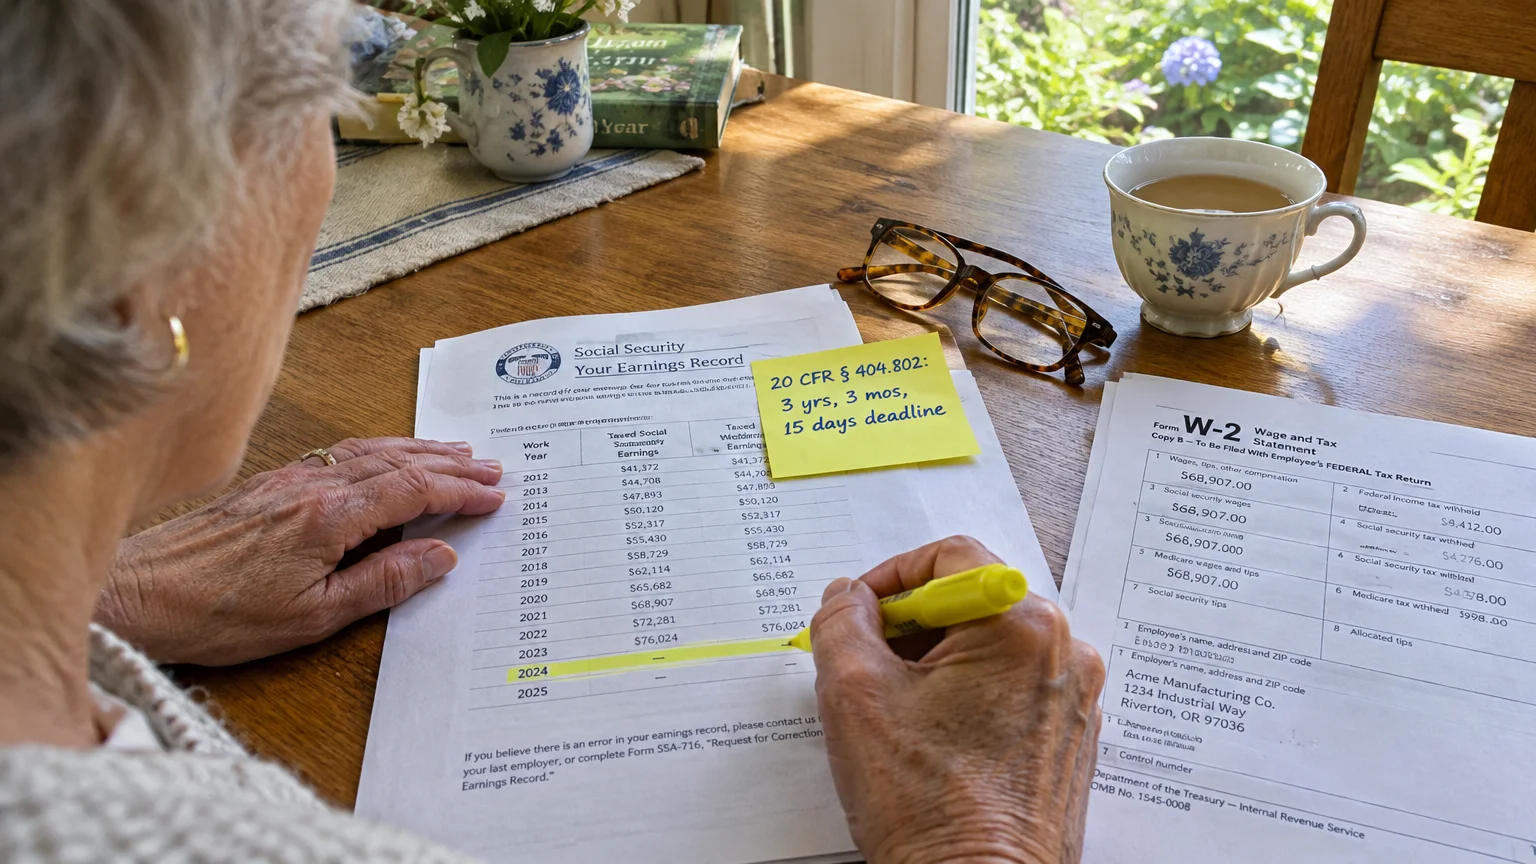 Year
Social Security
Your Earnings Record
20 CFR § 404.802:
3 yrs, 3 mos,
15 days deadline
Work
Year
Earnings
2012 $41,372
2013 $44,708
2014 $47,893 $47,893
2015 $50,120 $50,120
2016 $52,317 $52,317
2017 $55,430 $55,430
2018 $58,729 $58,729
2019 $62,114 $62,114
2020 $65,682 $65,682
2021 $68,907 $68,907
2022 $72,281 $72,281
2023 $76,024 $76,024
2024 — —
2025 — —
If you believe there is an error in your earnings record, please contact us
your last employer, or complete Form SSA-716, "Request for Correction
Earnings Record."
Form W-2 Wage and Tax
Statement
Copy B — To Be Filed With Employee's FEDERAL Tax Return
1 Wages, tips, other
$68,907.00
2 Federal income tax withheld
$9,412.00
3 Social security wages
$68,907.00
4 Social security tax withheld
$4,276.00
3
$68,907.000
4 Social security tax withheld
5 Medicare wages and tips
$68,907.00
6 Medicare tax withheld $998.00
7 Social security tips
8 Allocated tips
Employee's name, address and ZIP code
Employer's name, address and ZIP code
Acme Manufacturing Co.
1234 Industrial Way
Riverton, OR 97036
7 Control number
Department of the Treasury — Internal Revenue Service
OMB No. 1545-0008